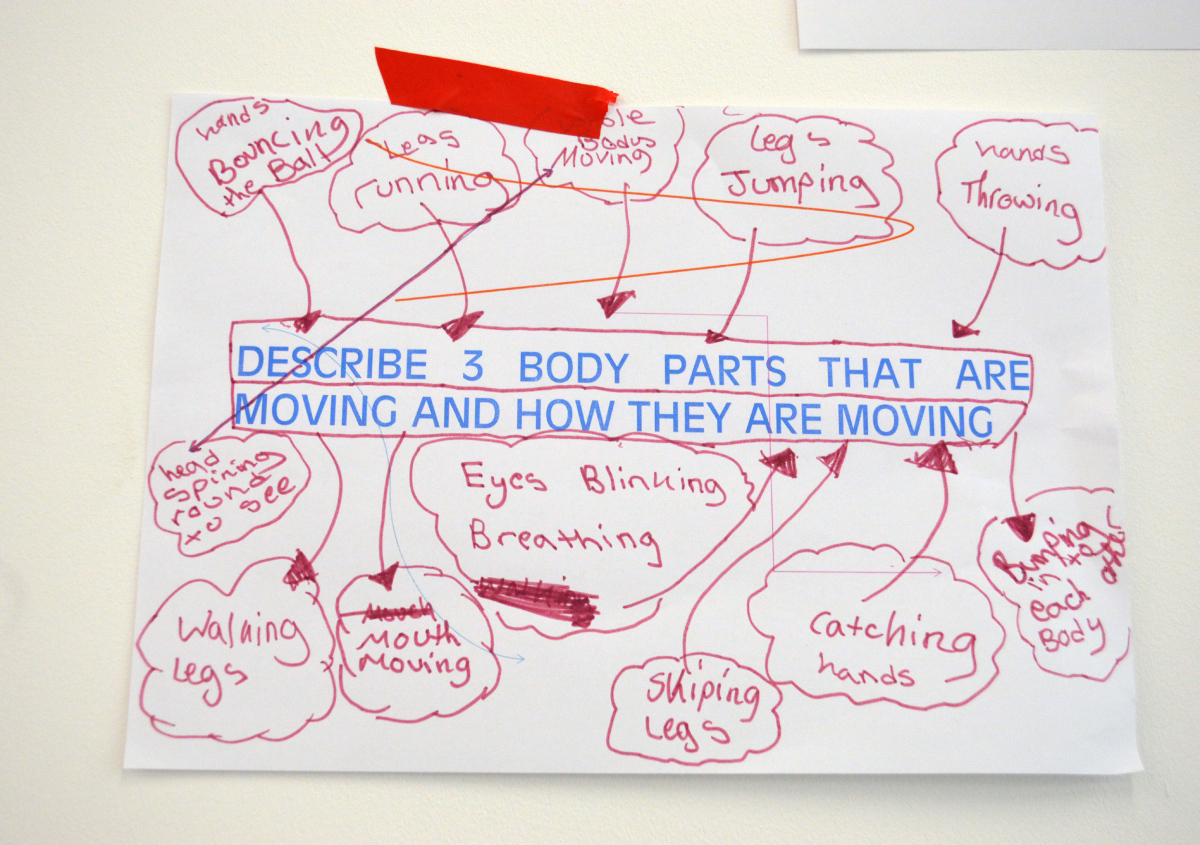 hands
Bouncing
the Ball
Legs
running
Bodys
Moving
Legs
Jumping
hands
Throwing
DESCRIBE 3 BODY PARTS THAT ARE
MOVING AND HOW THEY ARE MOVING
head
spining
round
to see
Eyes Blinking
Breathing
Walking
Legs
Mouth
Moving
Skiping
Legs
Catching
hands
Bumping
in
each
other
Body